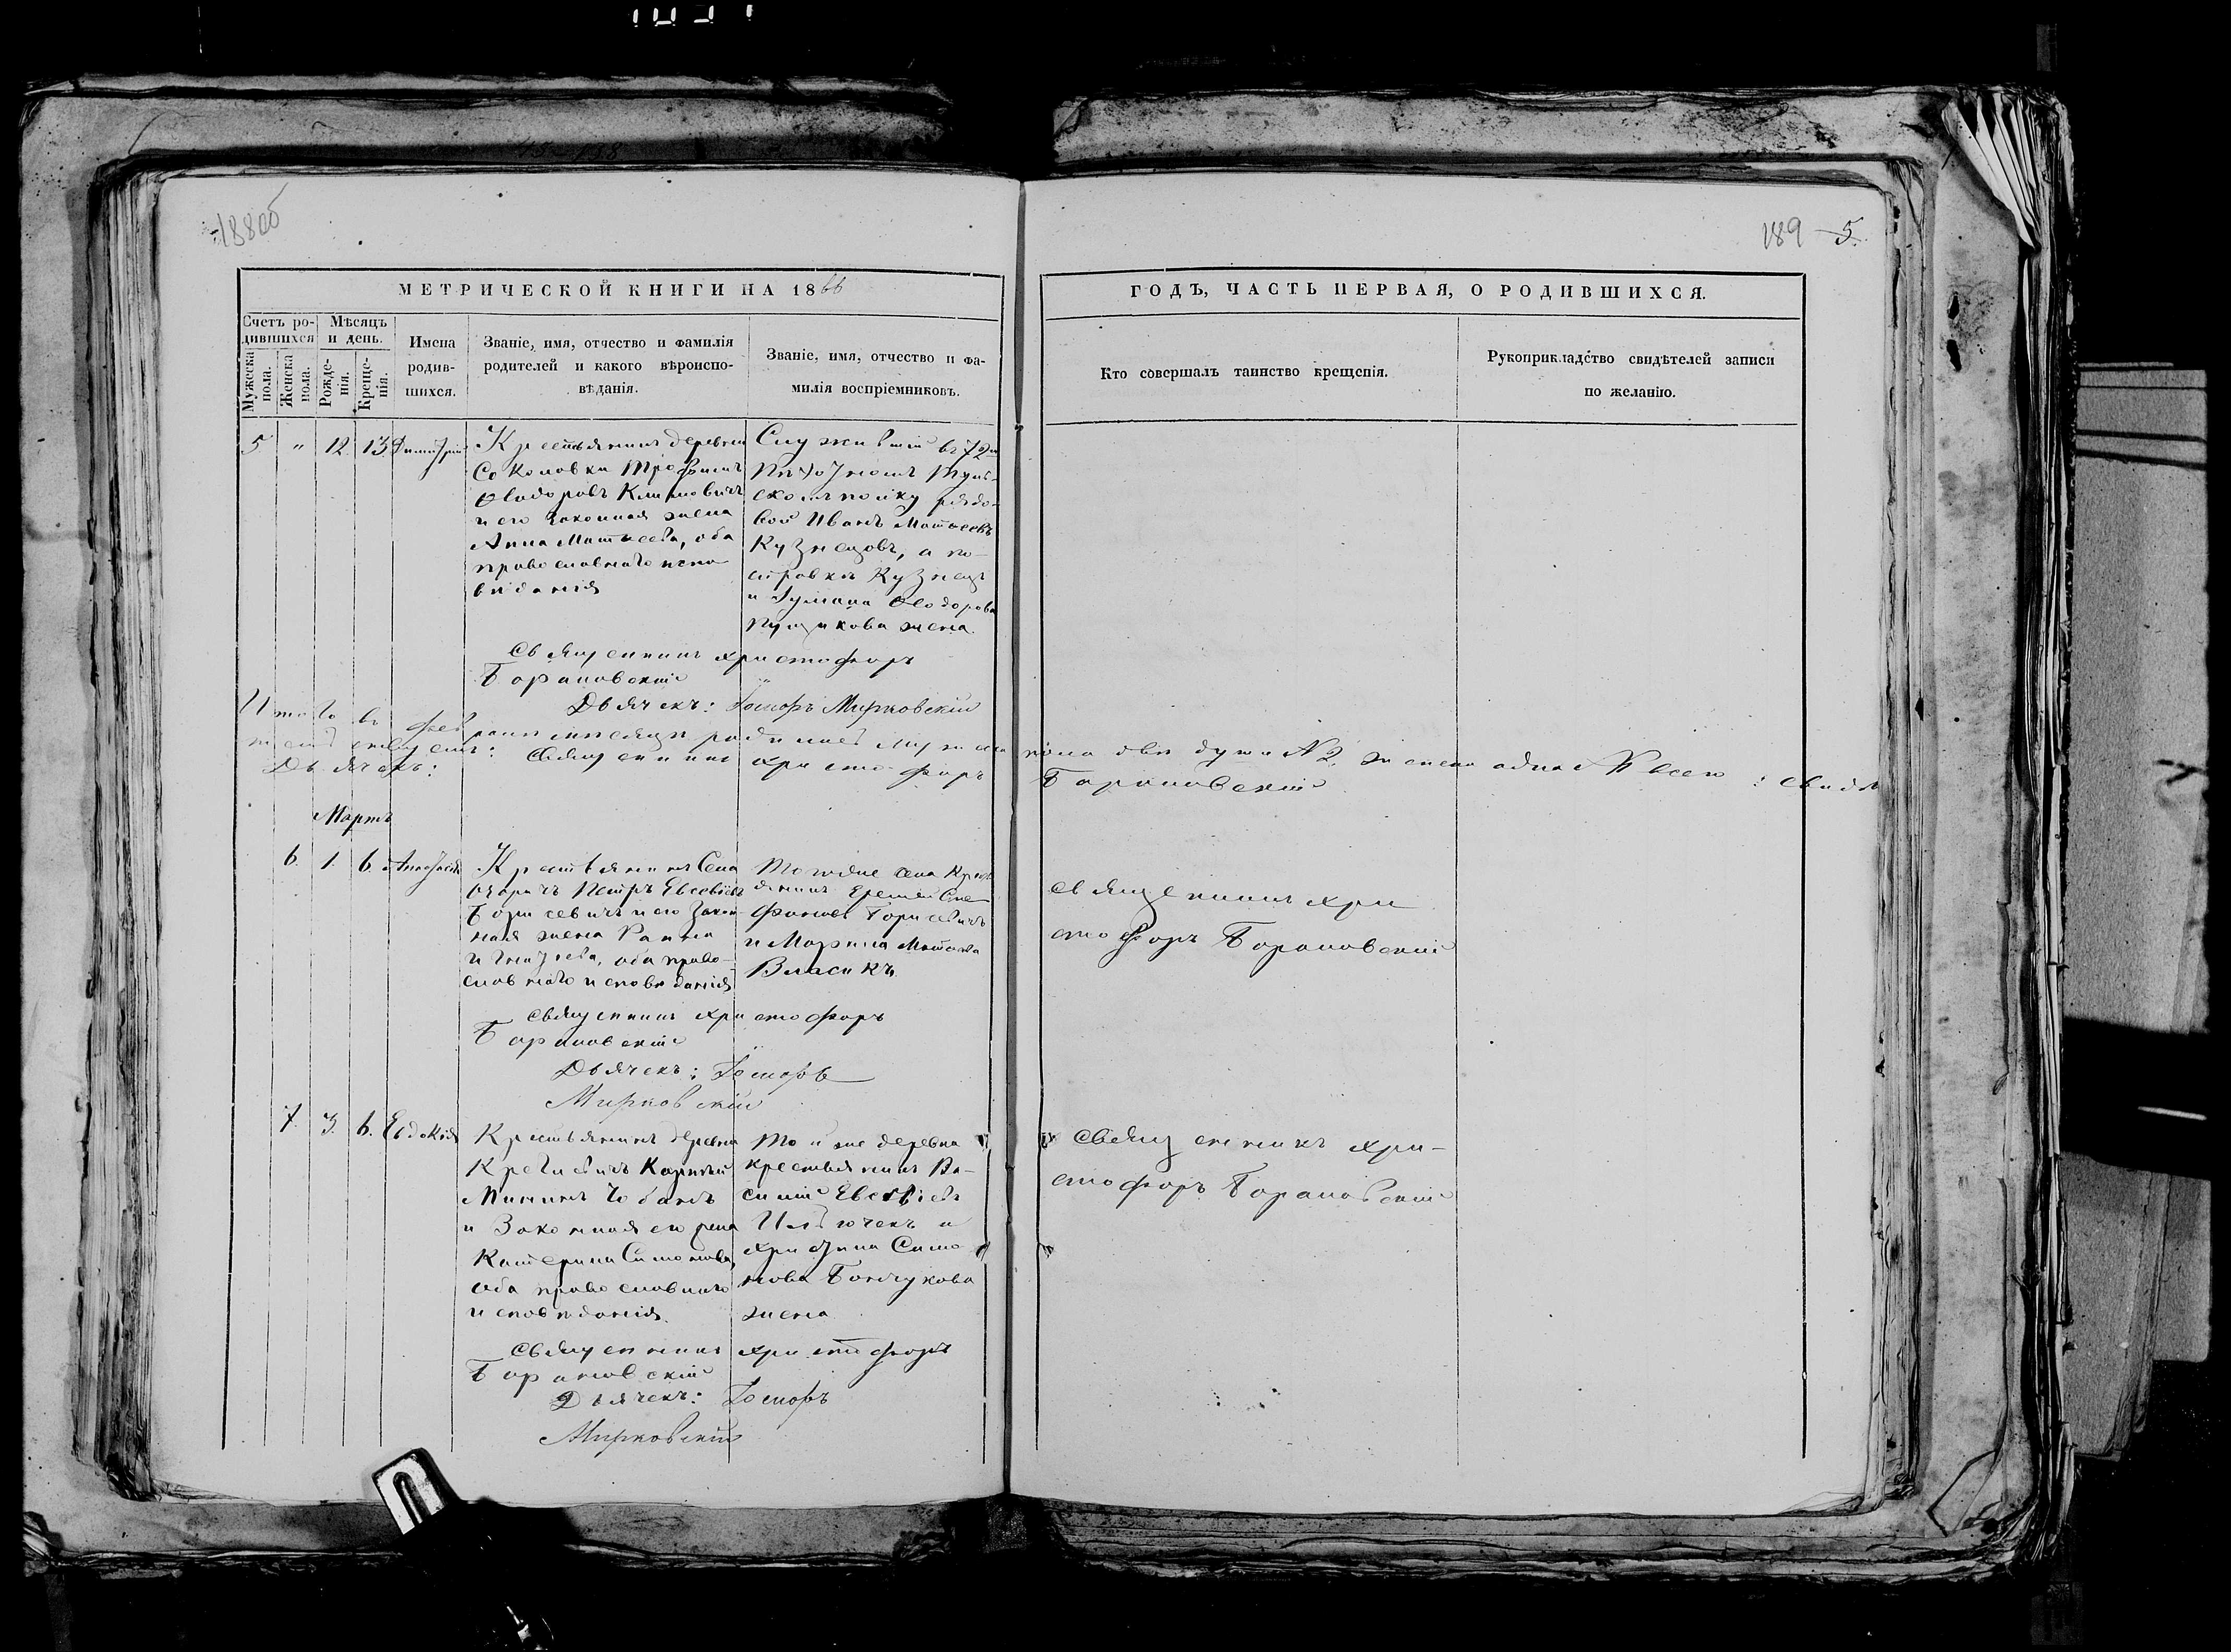 188об
189 5.
МЕТРИЧЕСКОЙ КНИГИ НА 1866
ГОДЪ, ЧАСТЬ ПЕРВАЯ, О РОДИВШИХСЯ.
Счетъ ро-
дившихся
Мужеска пола.
Женска пола.
Мѣсяцъ
и день.
Рожде-
нія.
Креще-
нія.
Имена
родив-
шихся.
Званіе, имя, отчество и фамилія
родителей и какого вѣроиспо-
вѣданія.
Званіе, имя, отчество и фа-
милія воспріемниковъ.
Кто совершалъ таинство крещенія.
Рукоприкладство свидѣтелей записи
по желанію.
5 " 12. 13. Димитрій
Крестьянинъ деревни
Соколовки Трофимъ
Ѳеодоровъ Климовичъ
и его законная жена
Анна Матѳеева, оба
православнаго испо
вѣданія
Служившій въ 72м
Пѣхотномъ Туль-
скомъ полку рядо-
вой Иванъ Матѳеевъ
Кузнецовъ, а по-
Кузнец
Ѳеодорова
жена.
Священникъ Христофоръ
Барановскій
Дьячекъ: Мирковскій
Итого въ февралѣ мѣсяцѣ родилось мужеска пола двѣ души № 2, женска одна всего : свидѣ
Священникъ Христофоръ Барановскій
Дьячекъ:
Мартъ
6. 1. 6. Анастасія
Крестьянинъ села
Петръ Евсевіевъ
Борисевичъ и его закон-
ная жена
Игнатьева, оба право-
славнаго исповѣданія
Того же села крест
янинъ Еремей Сте
фановъ Борисевичъ
и Марина
Власикъ
Священникъ Хри
стофоръ Барановскій
Священникъ Христофоръ
Барановскій
Дьячекъ:
Мирковскій
7. 3. 6. Евдокія
Крестьянинъ деревни
Корнилій
Мининъ Чобанъ
и законная его жена
Катерина Симонова,
оба православнаго
исповѣданія.
Той же деревни
крестьянинъ Ва-
силій Евсевіевъ
и
Христина Симо
нова Бончукова
жена
Священникъ Хри-
стофоръ Барановскій
Священникъ Христофоръ
Барановскій
Дьячекъ:
Мирковскій